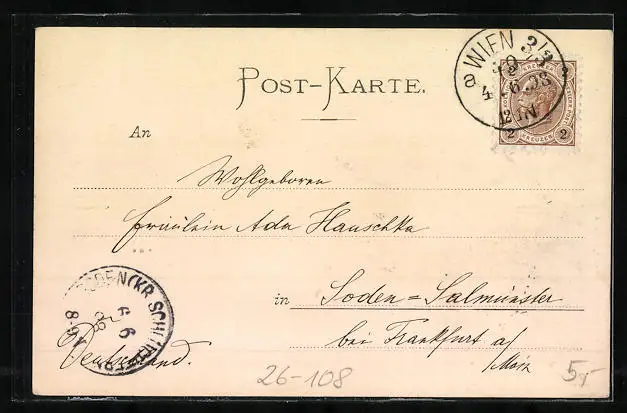 WIEN 3/3
50
a
4 6 98
12 N
2 2
KREUZER
2 2
POST-KARTE.
An
Wohlgeboren
Fräulein Ada Hauschka
in Soden=Salmünster
bei Frankfurt a/
Main
Deutschland.
SODEN (KR. SCHLÜCHTERN)
6 6
98
8-9
26-108
5,-